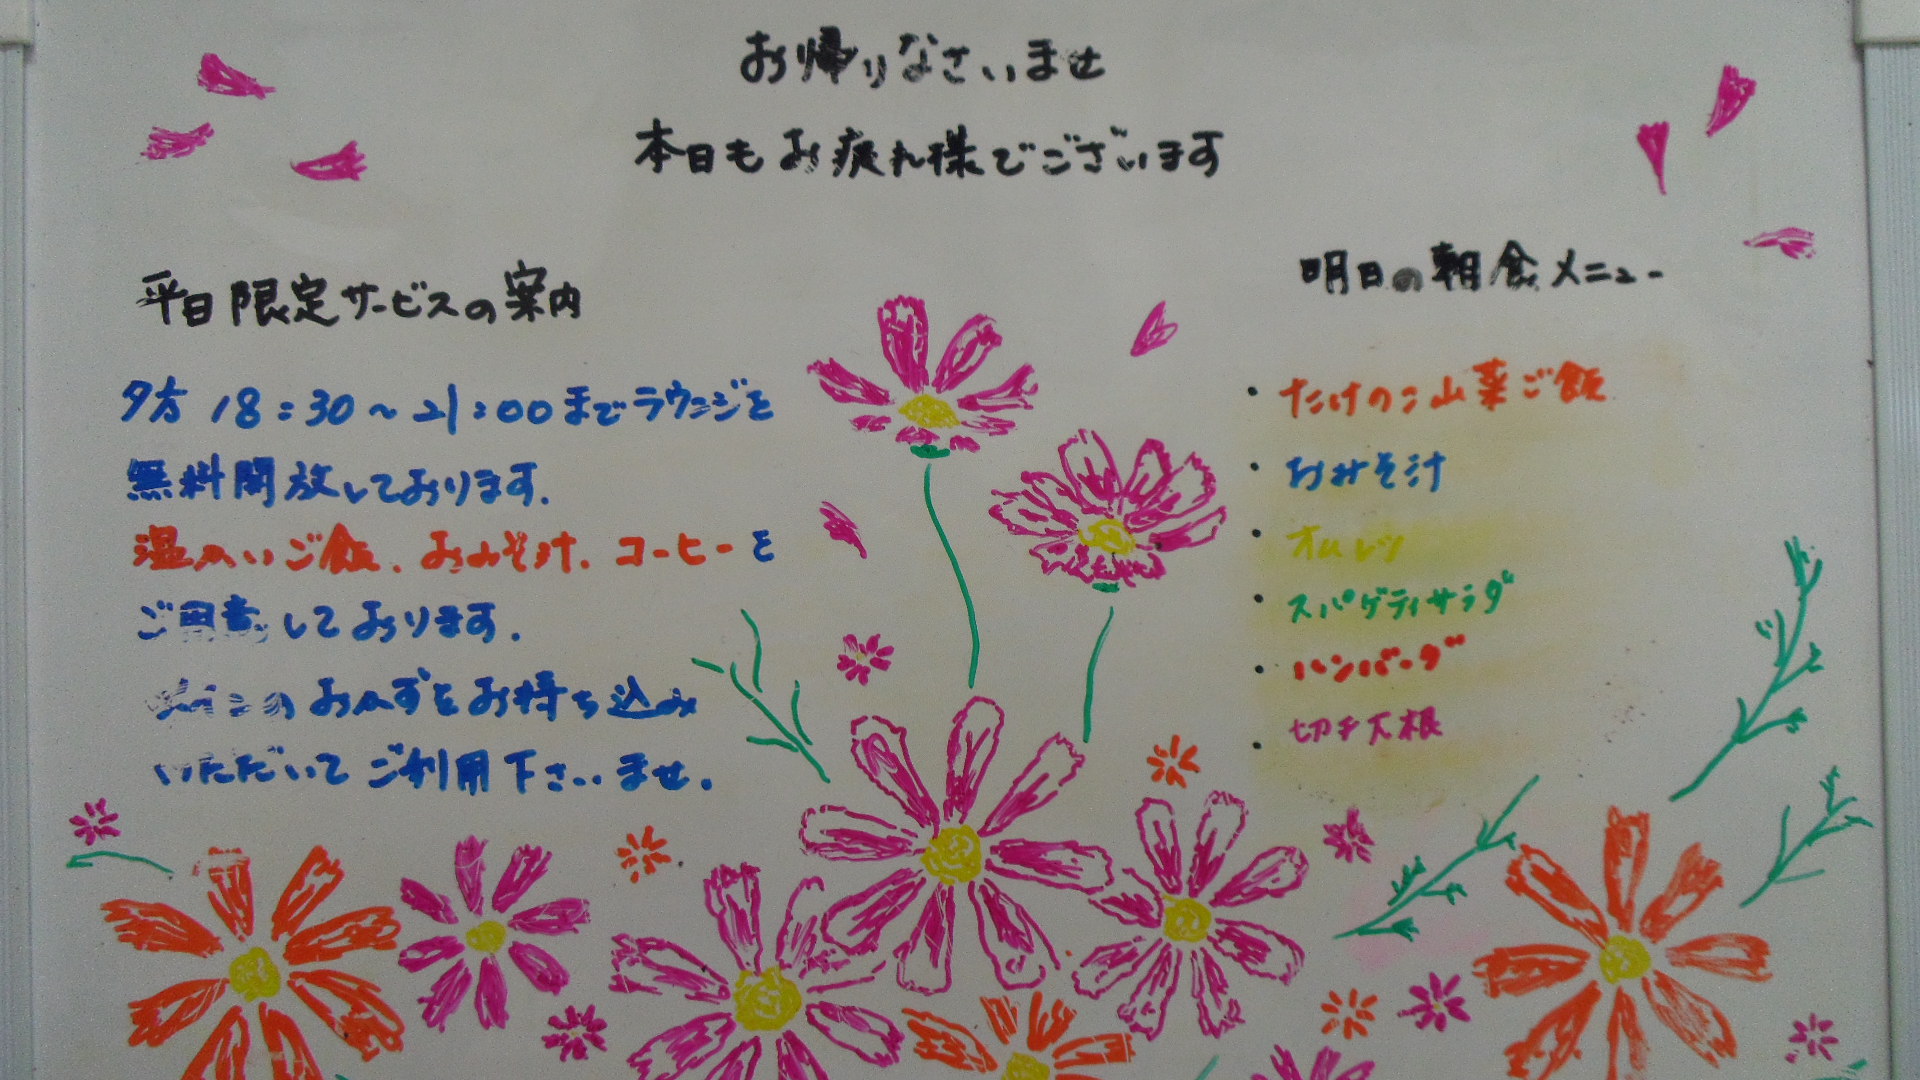 お帰りなさいませ
本日もお疲れ様でございます
平日限定サービスの案内
夕方 18:30～21:00までラウンジを
無料開放しております.
温かいご飯、おみそ汁、コーヒーを
ご用意しております.
おかずをお持ち込み
いただいてご利用下さいませ.
明日の朝食メニュー
・たけのこ山菜ご飯
・おみそ汁
・オムレツ
・スパゲティサラダ
・ハンバーグ
・切干大根